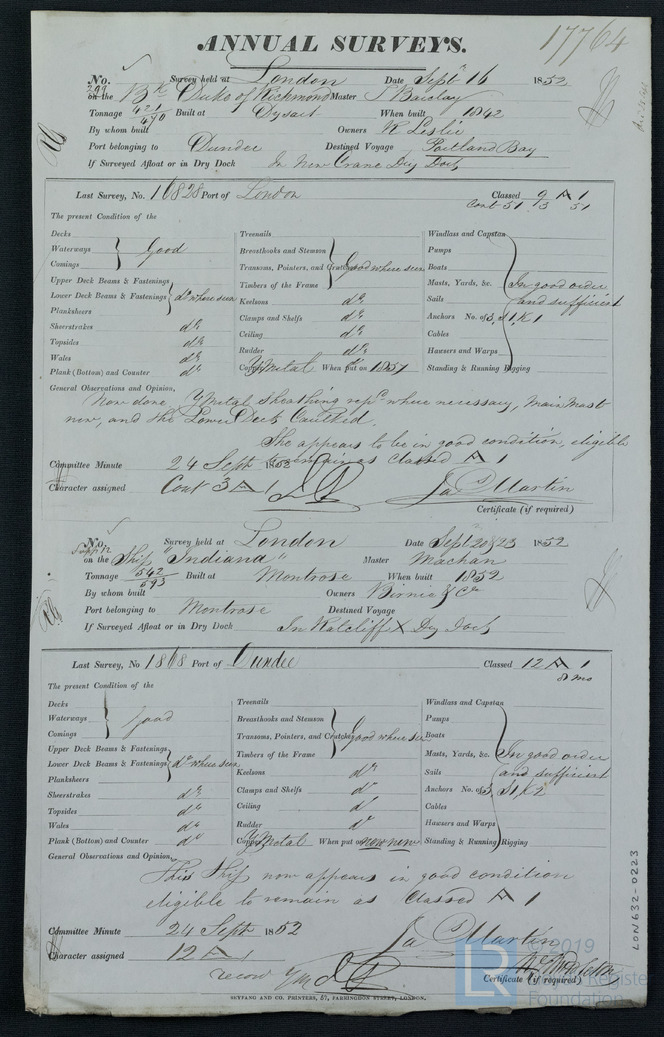 17764
ANNUAL SURVEYS.
No. 299 Survey held at London Date Septr 16 1852
on the Bk Duke of Richmond Master J Barclay
Tonnage 421/470 Built at Dysart When built 1842
By whom built Owners R Leslie
Port belonging to Dundee Destined Voyage Portland Bay
If Surveyed Afloat or in Dry Dock In New Crane Dry Dock
Last Survey, No. 16828 Port of London Classed 9 A 1
Cont 51 3 51
The present Condition of the
Decks Treenails Windlass and Capstan
Waterways Good Breasthooks and Stemson Pumps
Comings Transoms, Pointers, and Crutches good where seen Boats
Upper Deck Beams & Fastenings Timbers of the Frame Masts, Yards, &c. In good order
Lower Deck Beams & Fastenings do where seen Keelsons do Sails and sufficient
Planksheers Clamps and Shelfs do Anchors No. of 3, S1, K1
Sheerstrakes do Ceiling do Cables
Topsides do Rudder do Hawsers and Warps
Wales do Copper YMetal When put on 1851 Standing & Running Rigging
Plank (Bottom) and Counter do
General Observations and Opinion,
Now done, YMetal sheathing repd where necessary, Main Mast
new, and the Lower Deck Caulked.
She appears to be in good condition, eligible
to remain as Classed A 1
Committee Minute 24 Sept 1852
Character assigned Cont 3 A 1 Jas Martin
Certificate (if required)
No. Survey held at London Date Sept 20 & 23 1852
on the Ship "Indiana" Master Machan
Tonnage 542/593 Built at Montrose When built 1852
By whom built Owners Birnie & Co
Port belonging to Montrose Destined Voyage
If Surveyed Afloat or in Dry Dock In Ratcliff X Dry Dock
Last Survey, No 1868 Port of Dundee Classed 12 A 1
8 mo
The present Condition of the
Decks Treenails Windlass and Capstan
Waterways Good Breasthooks and Stemson Pumps
Comings Transoms, Pointers, and Crutches good where seen Boats
Upper Deck Beams & Fastenings Timbers of the Frame Masts, Yards, &c. In good order
Lower Deck Beams & Fastenings do where seen Keelsons do Sails and sufficient
Planksheers Clamps and Shelfs do Anchors No. of 3, S1, K2
Sheerstrakes do Ceiling do Cables
Topsides do Rudder do Hawsers and Warps
Wales do Copper YMetal When put on now new Standing & Running Rigging
Plank (Bottom) and Counter do
General Observations and Opinion,
This Ship now appears in good condition
eligible to remain as Classed A 1
Committee Minute 24 Sept 1852
Character assigned 12 A 1 Jas Martin
record YM
Certificate (if required)
SEYFANG AND CO. PRINTERS, 57, FARRINGDON STREET, LONDON.
LON632-0223
LR © 2019
Lloyd's Register
Foundation